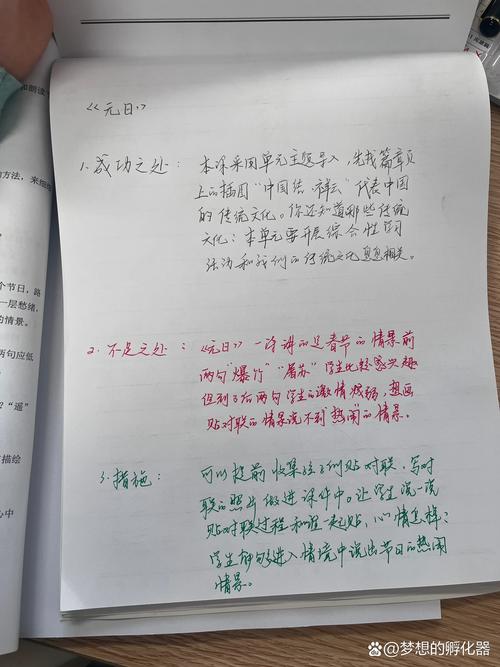 《元日》
1. 成功之处：本课采用单元主题导入，先找篇章页
上的插图“中国结、祥云”代表中国
的传统文化。你还知道哪些传统
文化；本单元要开展综合性学习
活动和我们的传统文化息息相关。
2. 不足之处：《元日》一诗讲的是春节的情景前
两句“爆竹”“屠苏”学生比较感兴趣
但到了后两句学生的激情减弱，想画
贴对联的情景说不到“热闹”的情景。
3. 措施：可以提前收集孩子们贴对联、写对
联的照片做进课件中。让学生说一说
贴对联过程和谁一起贴，心情怎样？
学生能够进入情境中说出节日的热闹
情景。
和朗读
方法，来细
个节日，路
一层愁绪，
的情景。
两句应低
“遥”
描绘
心中
百家号/梦想的孵化器